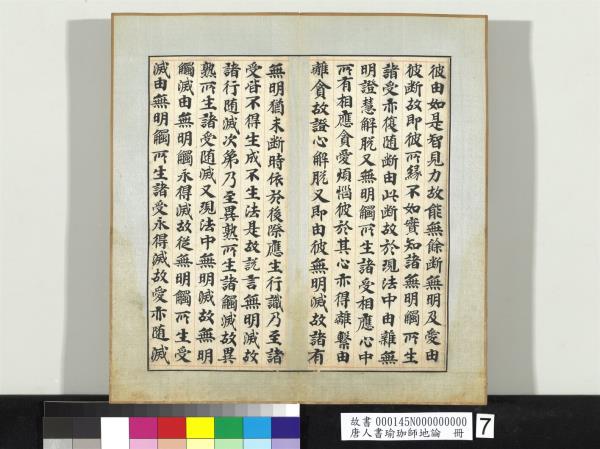 彼由如是智見力故能無餘斷無明及愛由
彼斷故即彼所緣不如實知諸無明觸所生
諸受亦復隨斷由此斷故於現法中由離無
明證慧解脫又無明觸所生諸受相應心中
所有相應貪愛煩惱彼於其心亦得離繫由
離貪故證心解脫又即由彼無明滅故諸有
無明猶未斷時依於後際應生行識乃至諸
受皆不得生成不生法是故說言無明滅故
諸行隨滅次第乃至異熟所生諸觸滅故異
熟所生諸受隨滅又現法中無明滅故無明
觸滅由無明觸永得滅故從無明觸所生受
滅由無明觸所生諸受永得滅故愛亦隨滅
故書 000145N000000000
唐人書瑜珈師地論 冊
7